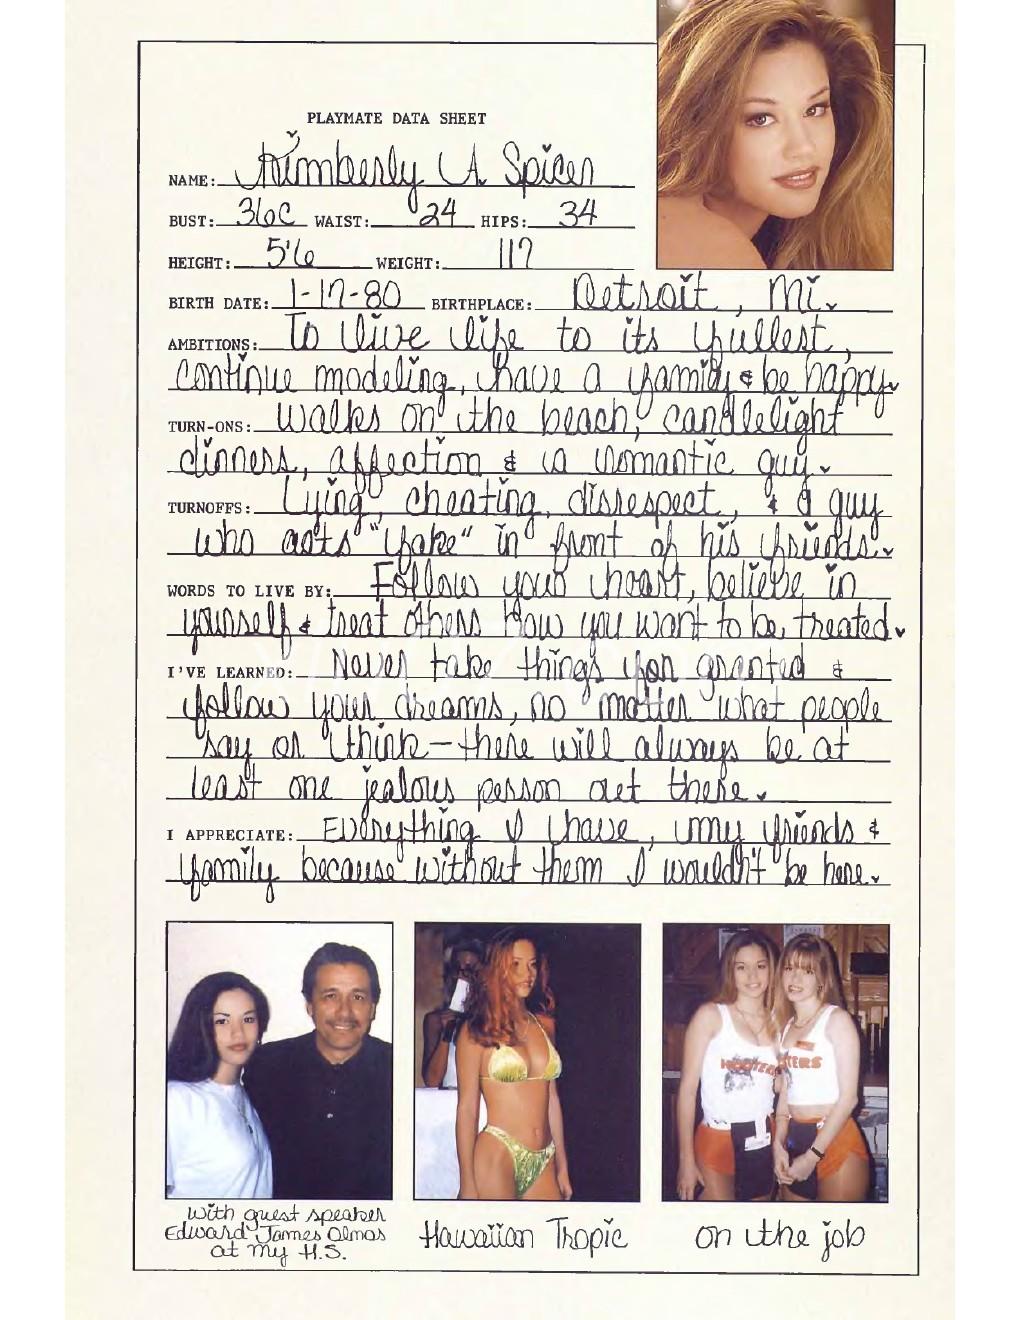 PLAYMATE DATA SHEET
NAME: Kimberly A Spicer
BUST: 36C WAIST: 24 HIPS: 34
HEIGHT: 5'6 WEIGHT: 117
BIRTH DATE: 1-17-80 BIRTHPLACE: Detroit, Mi.
AMBITIONS: To live life to its fullest,
continue modeling, have a family & be happy.
TURN-ONS: Walks on the beach, candlelight
dinners, affection & a romantic guy.
TURNOFFS: Lying, cheating, disrespect, & a guy
who acts "fake" in front of his friends.
WORDS TO LIVE BY: Follow your heart, believe in
yourself & treat others how you want to be treated.
I'VE LEARNED: Never take things for granted &
follow your dreams, no matter what people
say or think—there will always be at
least one jealous person out there.
I APPRECIATE: Everything I have, my friends &
family because without them I wouldn't be here.
HOOTERS
TERS
with guest speaker
Edward James Olmos
at my H.S.
Hawaiian Tropic
on the job